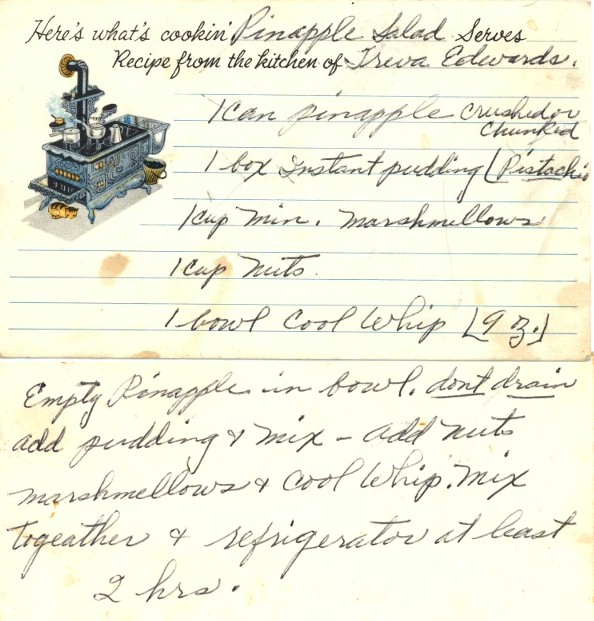 Here's what's cookin' Pinapple Salad Serves
Recipe from the kitchen of Treva Edwards.
1 can pinapple crushed or
chunked
1 box instant pudding [Pistachio
1 cup min. marshmellows
1 cup nuts.
1 bowl Cool Whip [9 oz.]
Empty Pinapple in bowl. dont drain
add pudding & mix - add nuts
marshmellows & Cool Whip. Mix
togeather & refrigerator at least
2 hrs.